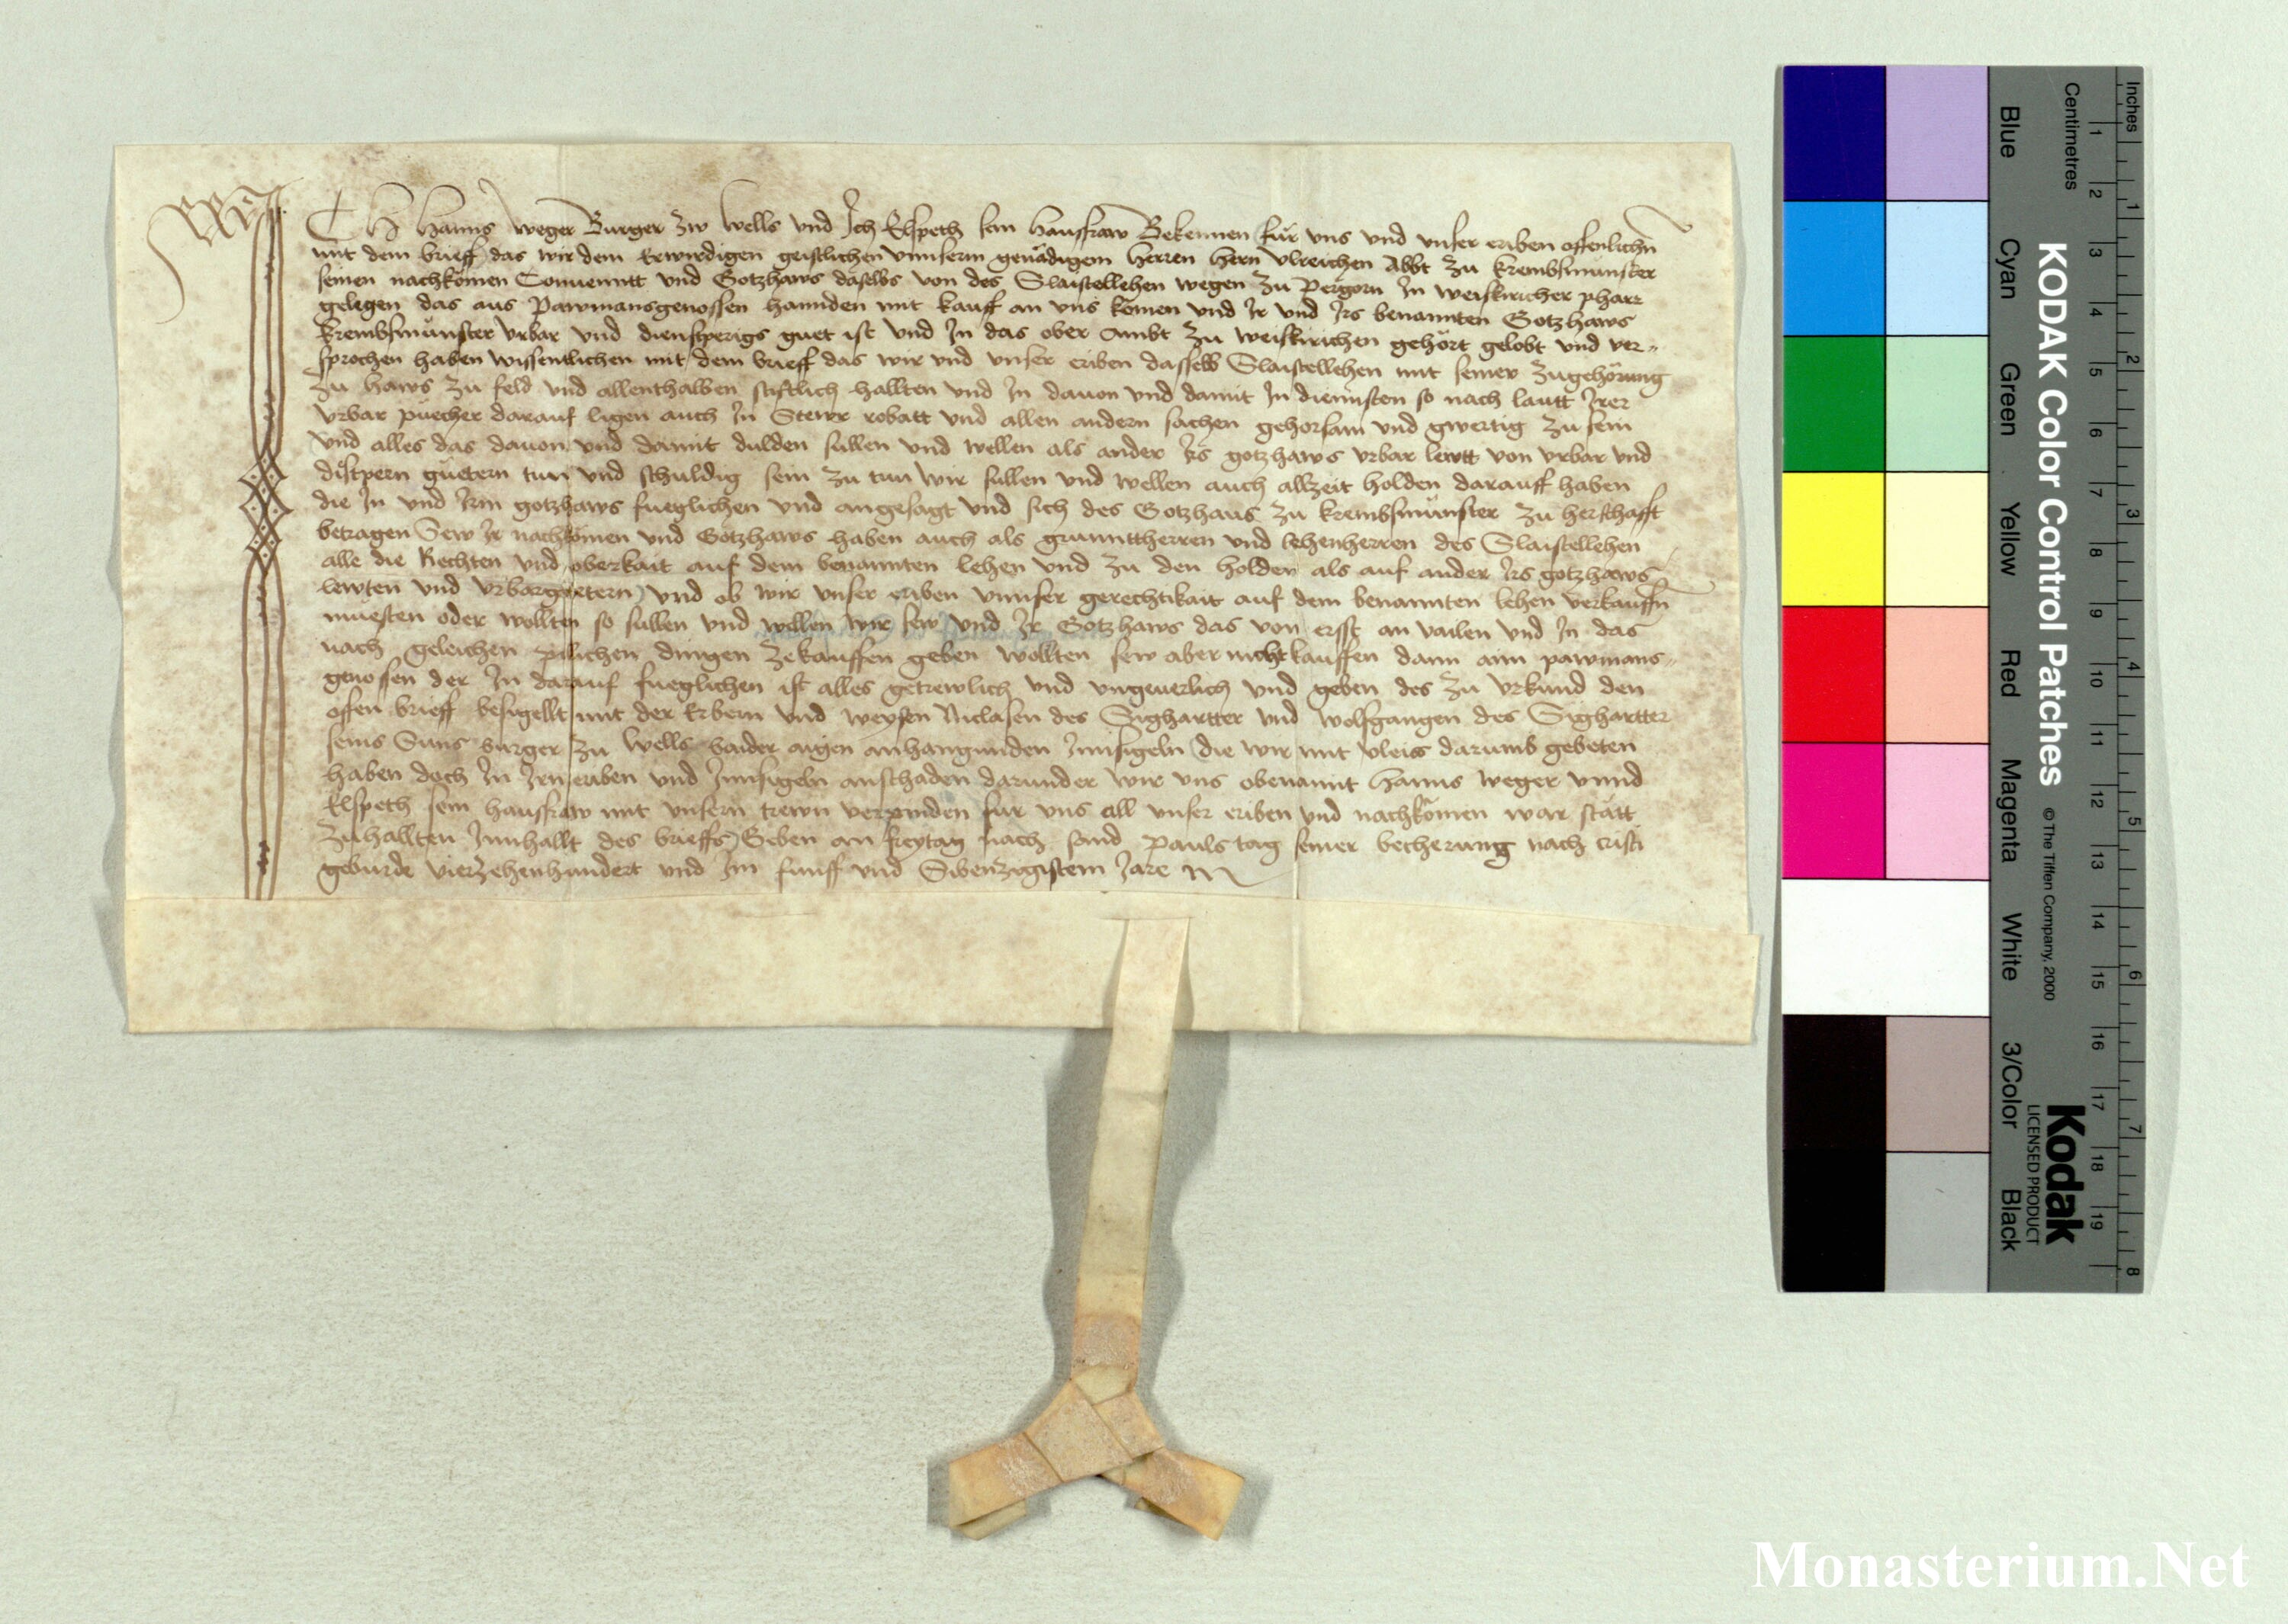 ICH Hanns Weger Burger zw Wells vnd Ich Elspeth sein hausfraw Bekennen für vns vnd vnser eriben offenlichn
mit dem brieff das wir dem Erwirdigen geistlichen vnnserm genädigem Herren Hern Vlreichen Abbt zu Krembsmünster
seinen nachkömen Conuenntt vnd Gotzhaws daselbs von des Slaistellehen wegen zu Pergorn in weiskiricher pharr
gelegen das aus Pawmansgenossen hannden mit kauff an vns komen vnd Ir vnd Irs benannten Gotzhaws
Krembsmünster vrbar vnd dienstperigs guet ist vnd In das ober Ambt zu weiskirichen gehört gelobt vnd ver-
sprochen haben wissentlichen mit dem brieff das wir vnd vnser eriben dasselb Slaistellehen mit seiner zugehörung
zu haws zu feld vnd allenthalben stiftlich hallten vnd In dauon vnd damit In diennsten so nach lautt Irer
vrbar püecher darauf ligen auch In Stewr robatt vnd allen andern sachen gehorsam vnd gwertig zu sein
vnd alles das dauon vnd damit dulden sullen vnd wellen als ander Irs gotzhaws vrbar lewtt von vrbar vnd
distpern güetern tun vnd schuldig sein zu tun wir sullen vnd wellen auch allzeit holden darauff haben
die In vnd Irm gotzhaws fueglichen vnd angesagt vnd sich des Gotzhaus zu Krembsmünster zu herschafft
betragen Sew Ir nachkömen vnd Gotzhaws haben auch als grunnttherren vnd lehenherren des Slaistellehen
alle die Rechten vnd oberkait auf dem benannten lehen vnd zu den holden als auf ander Irs gotzhaws
lewten vnd vrbargüetern vnd ob wir vnser eriben vnnser gerechtikait auf dem benannten lehen verkauffn
müesten oder wollten so sullen vnd wellen wir sew vnd Ir Gotzhaws das von ersst an vailen vnd In das
nach geleichen pilichen dingen zekauffen geben wollten sew aber nicht kauffen dann aim pawmans-
genossen der In darauf fueglichen ist alles getrewlich vnd vngeuerlich vnd geben des zu vrkund den
offen brieff besigellt mit der Erbern vnd weysen Niclasen des Sighartter vnd wolfgangen des Sighartter
seins Suns burger zu Wells baider aigen anhangunden Innsigeln die wir mit vleiss darumb gebeten
haben doch In Irn eriben vnd Innsigeln anschaden darunder wir vns obenannt Hanns Weger vnnd
Elspeth sein hausfraw mit vnsern trewn verpinden für vns all vnser eriben vnd nachkömen war stätt
zuhallten Innhallt des brieffs Geben an freytag nach sand Pauls tag seiner becherung nach cristi
geburde vierzehenhundert vnd Im funff vnd Sibenzigistem Jare
KODAK Color Control Patches
© The Tiffen Company, 2000
Kodak
LICENSED PRODUCT
Inches
1 2 3 4 5 6 7 8
Centimetres
1 2 3 4 5 6 7 8 9 10 11 12 13 14 15 16 17 18 19
Blue
Cyan
Green
Yellow
Red
Magenta
White
3/Color
Black
Monasterium.Net